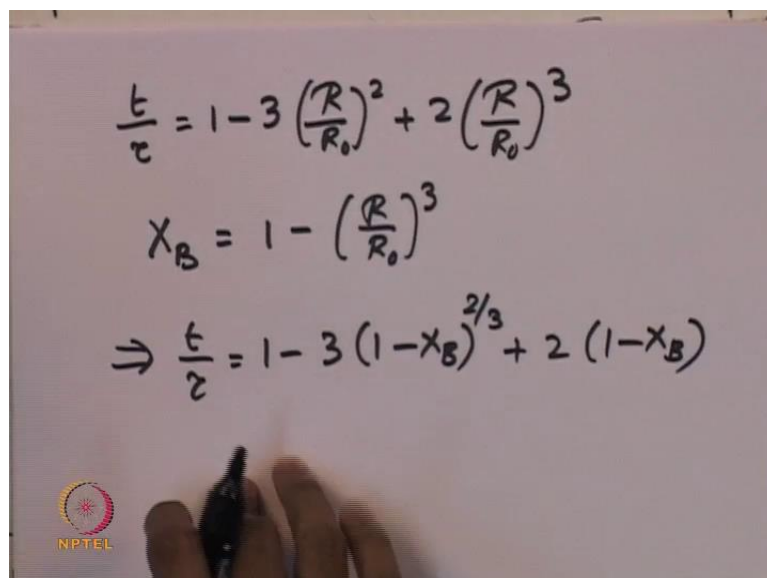 t/τ = 1 - 3 (R/R₀)² + 2 (R/R₀)³
X_B = 1 - (R/R₀)³
⇒ t/τ = 1 - 3 (1 - X_B)^{2/3} + 2 (1 - X_B)
NPTEL